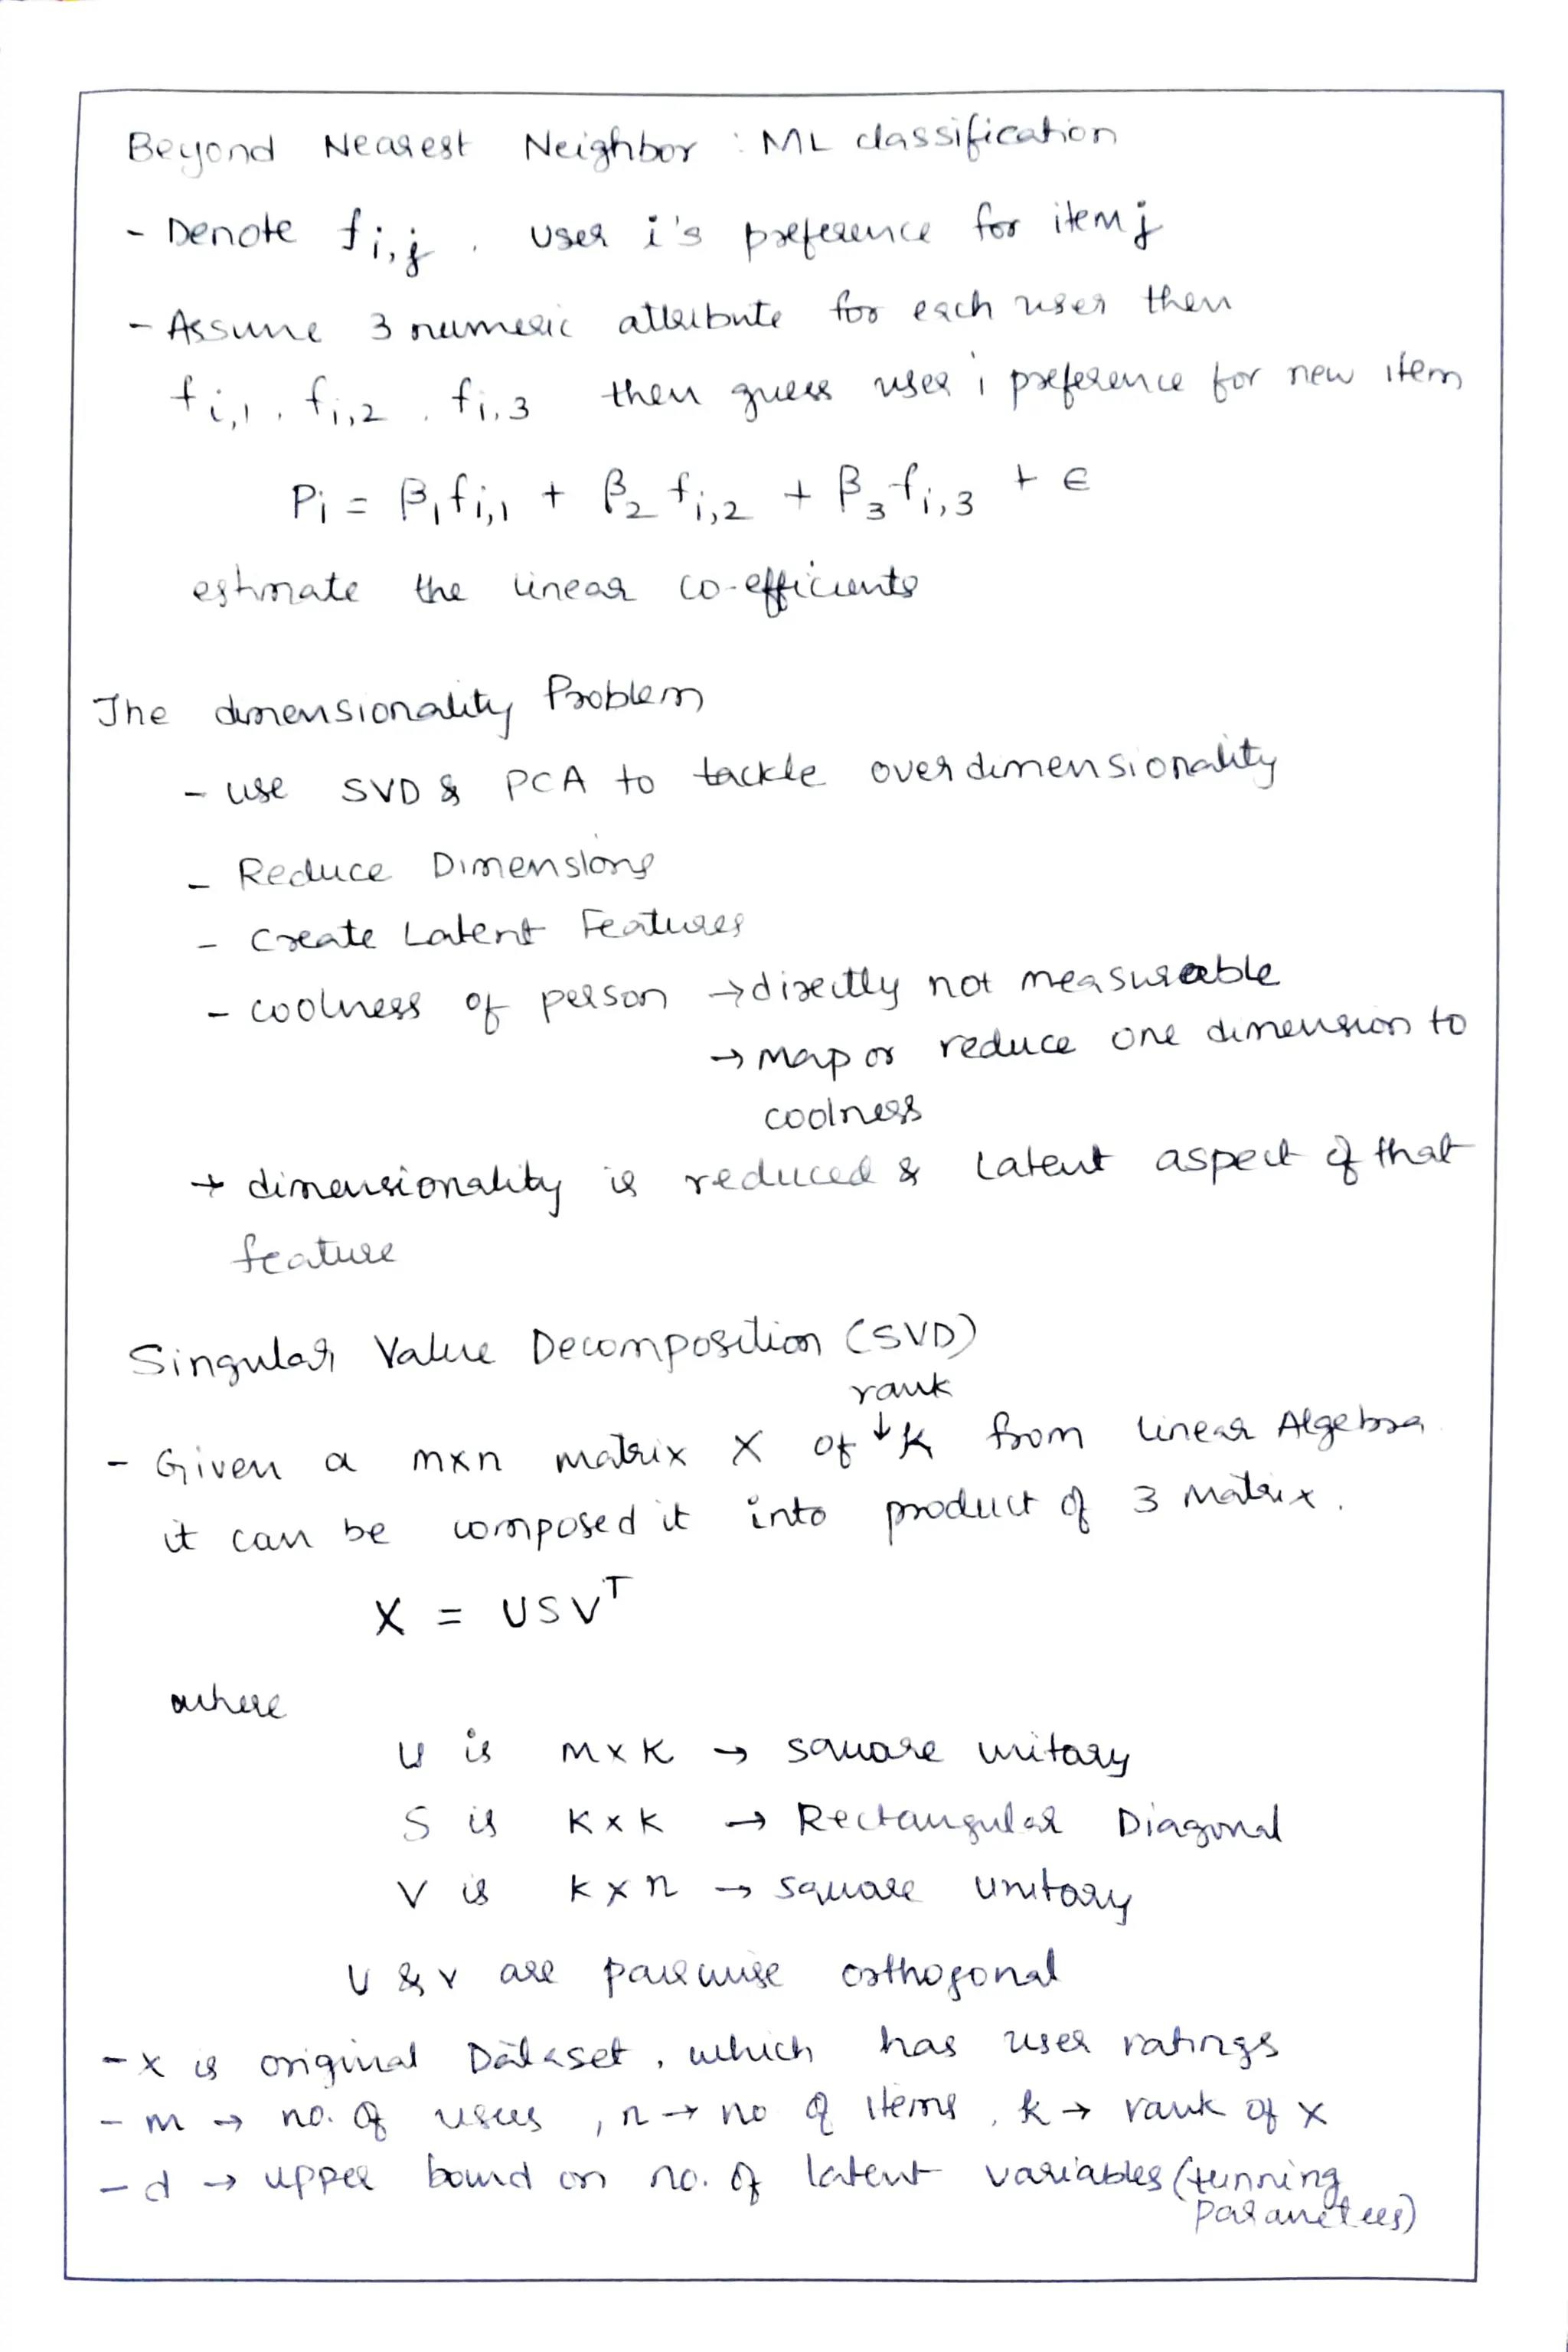 Beyond Nearest Neighbor : ML classification
- Denote fi,j , user i's preference for item j
- Assume 3 numeric attribute for each user then
fi,1 , fi,2 , fi,3 then guess user i preference for new item
Pi = β1 fi,1 + β2 fi,2 + β3 fi,3 + ϵ
estimate the linear co-efficients
The dimensionality Problem
- use SVD & PCA to tackle overdimensionality
- Reduce Dimensions
- Create Latent Features
- coolness of person → directly not measureable
→ Map or reduce one dimension to
coolness
→ dimensionality is reduced & latent aspect of that
feature
Singular Value Decomposition (SVD)
rank
- Given a m×n matrix X of ↓ k from linear Algebra
it can be composed it into product of 3 Matrix.
X = USVᵀ
where
U is m×k → square unitary
S is k×k → Rectangular Diagonal
V is k×n → square unitary
U & V are pairwise orthogonal
- X is original Dataset, which has user ratings
- m → no. of users , n → no of items , k → rank of X
- d → upper bound on no. of latent variables (tunning
parameters)